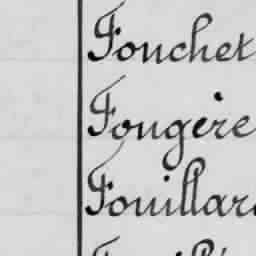 Fouchet
Fougère
Fouillar